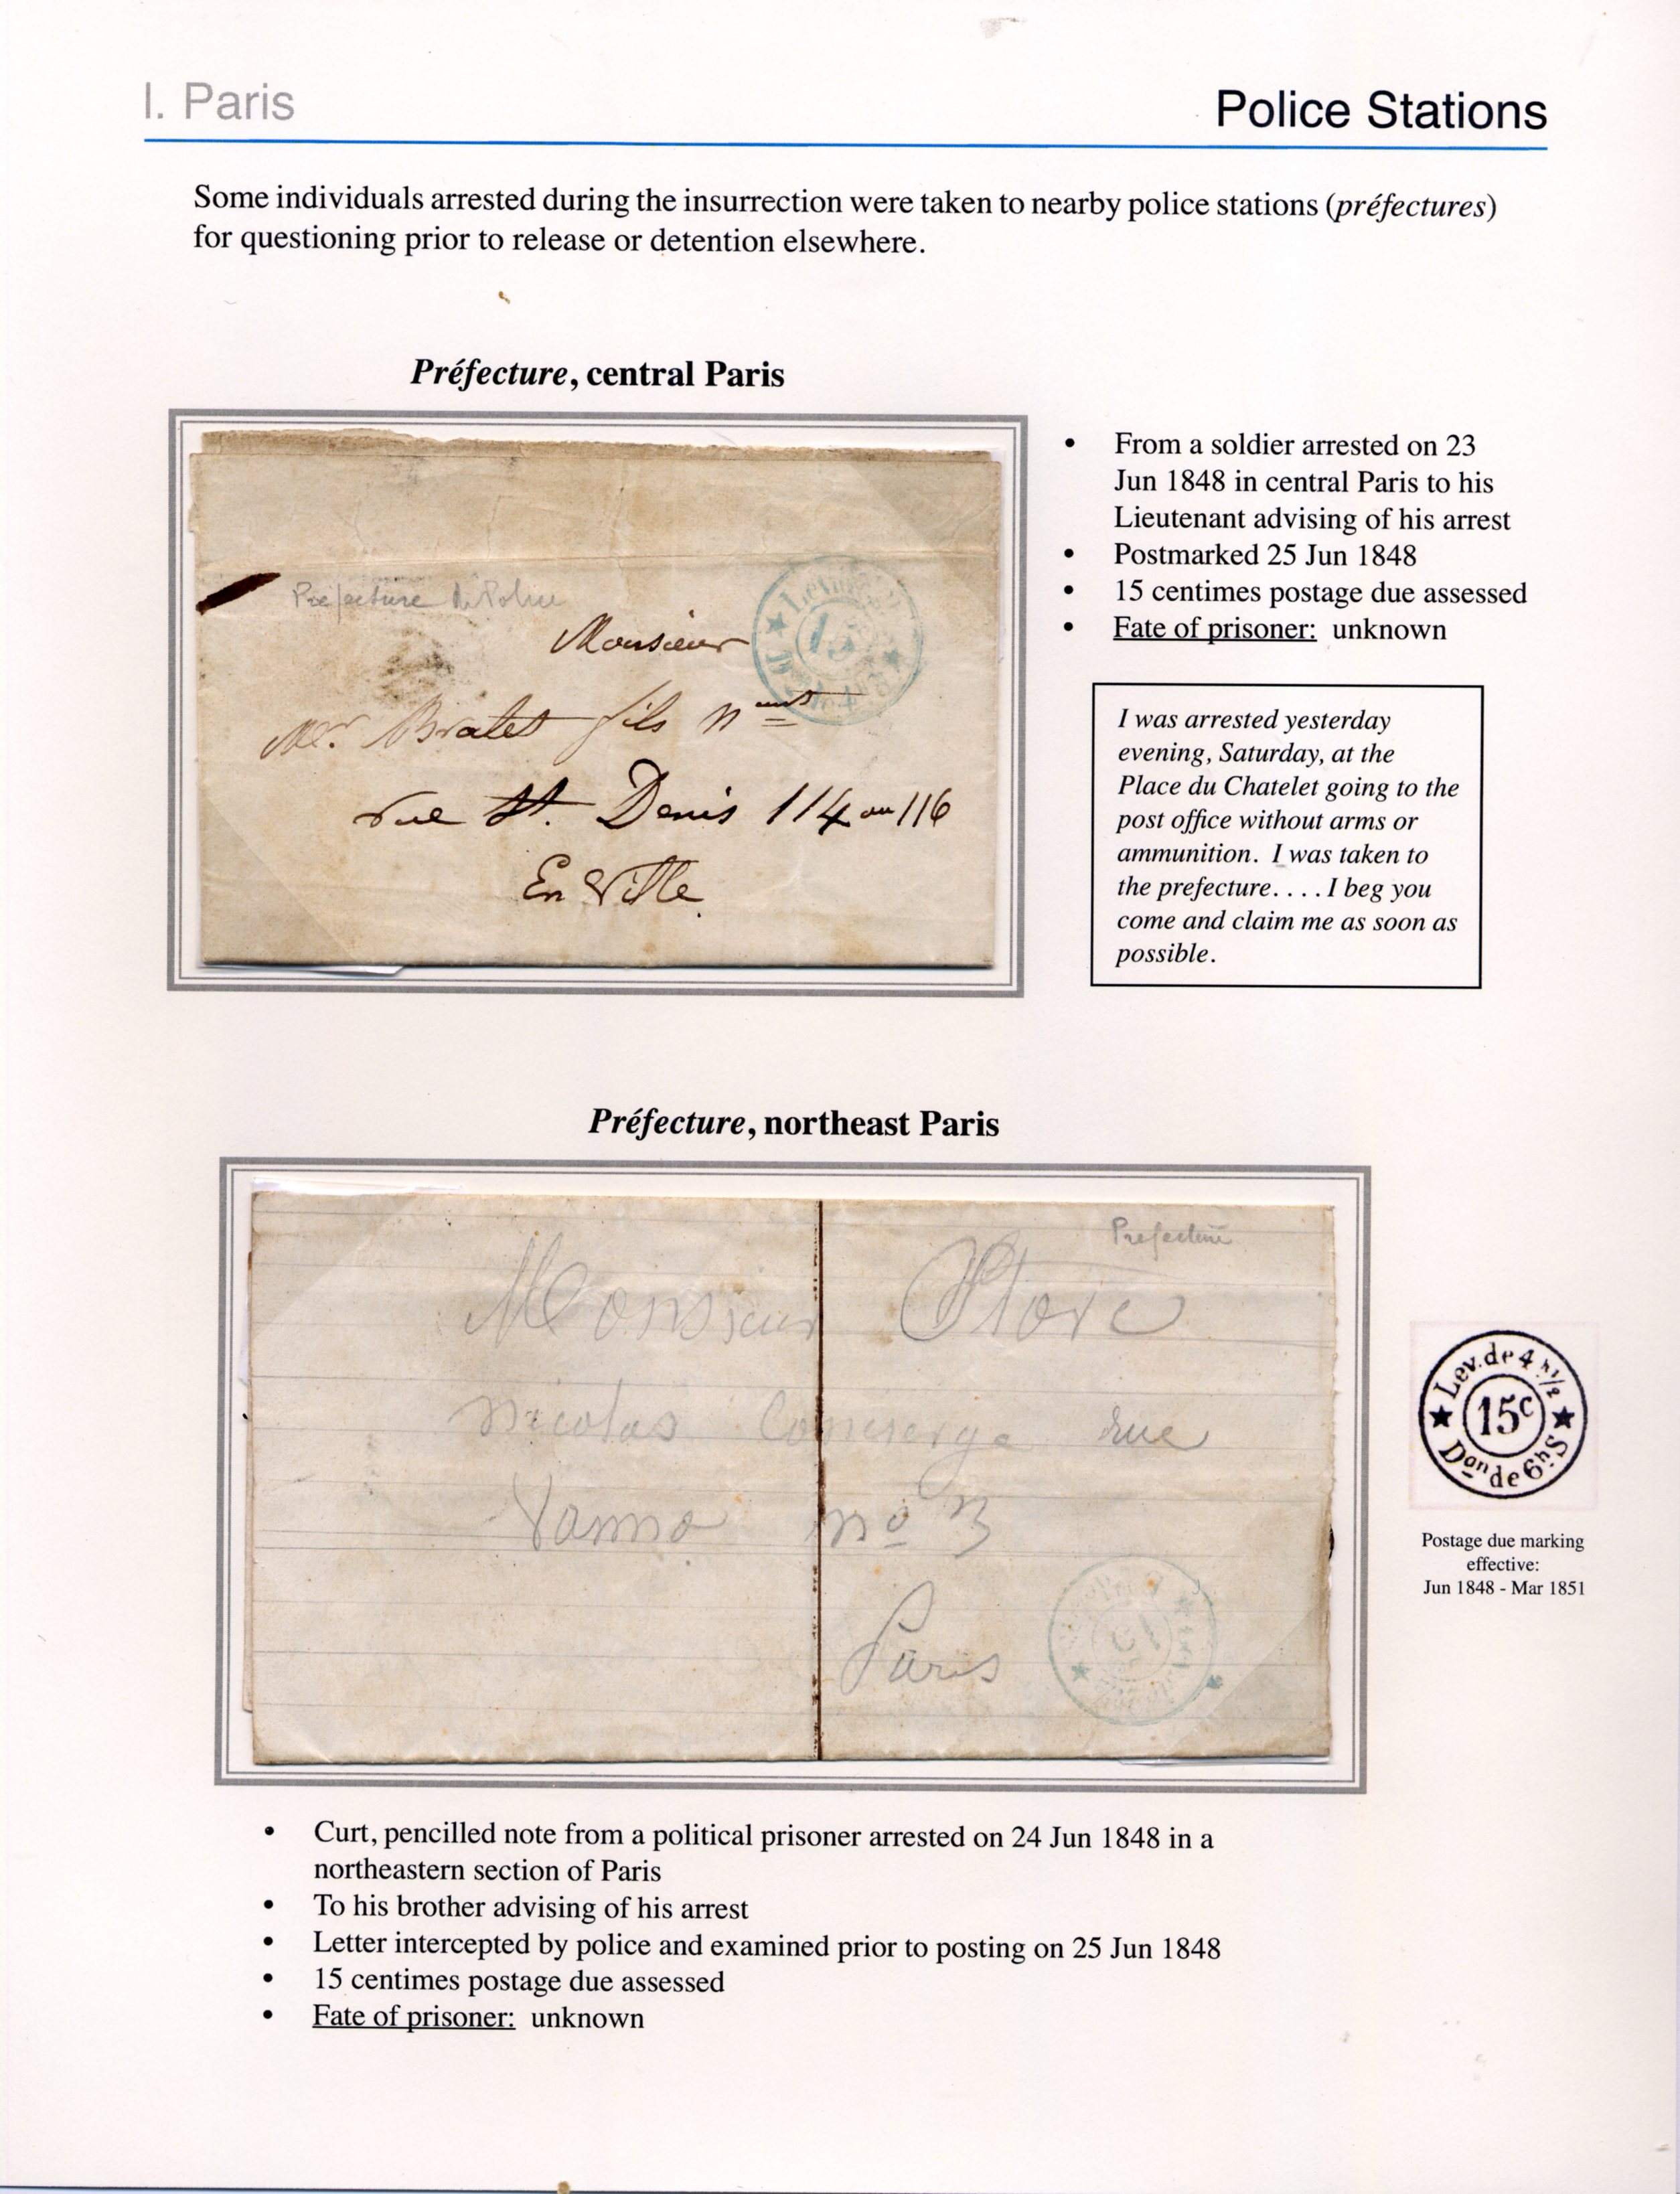 I. Paris
Police Stations
Some individuals arrested during the insurrection were taken to nearby police stations (préfectures)
for questioning prior to release or detention elsewhere.
Préfecture, central Paris
Préfecture de Police
Monsieur
Mr. Bratet fils
rue St. Denis 114 ou 116
En Ville
15
• From a soldier arrested on 23
Jun 1848 in central Paris to his
Lieutenant advising of his arrest
• Postmarked 25 Jun 1848
• 15 centimes postage due assessed
• Fate of prisoner: unknown
I was arrested yesterday
evening, Saturday, at the
Place du Chatelet going to the
post office without arms or
ammunition. I was taken to
the prefecture. . . . I beg you
come and claim me as soon as
possible.
Préfecture, northeast Paris
Prefecture
Monsieur
Nicolas Concierge rue
no 3
Paris
Lev. de 4 h 1/2
15c
Don de 6h S
Postage due marking
effective:
Jun 1848 - Mar 1851
• Curt, pencilled note from a political prisoner arrested on 24 Jun 1848 in a
northeastern section of Paris
• To his brother advising of his arrest
• Letter intercepted by police and examined prior to posting on 25 Jun 1848
• 15 centimes postage due assessed
• Fate of prisoner: unknown